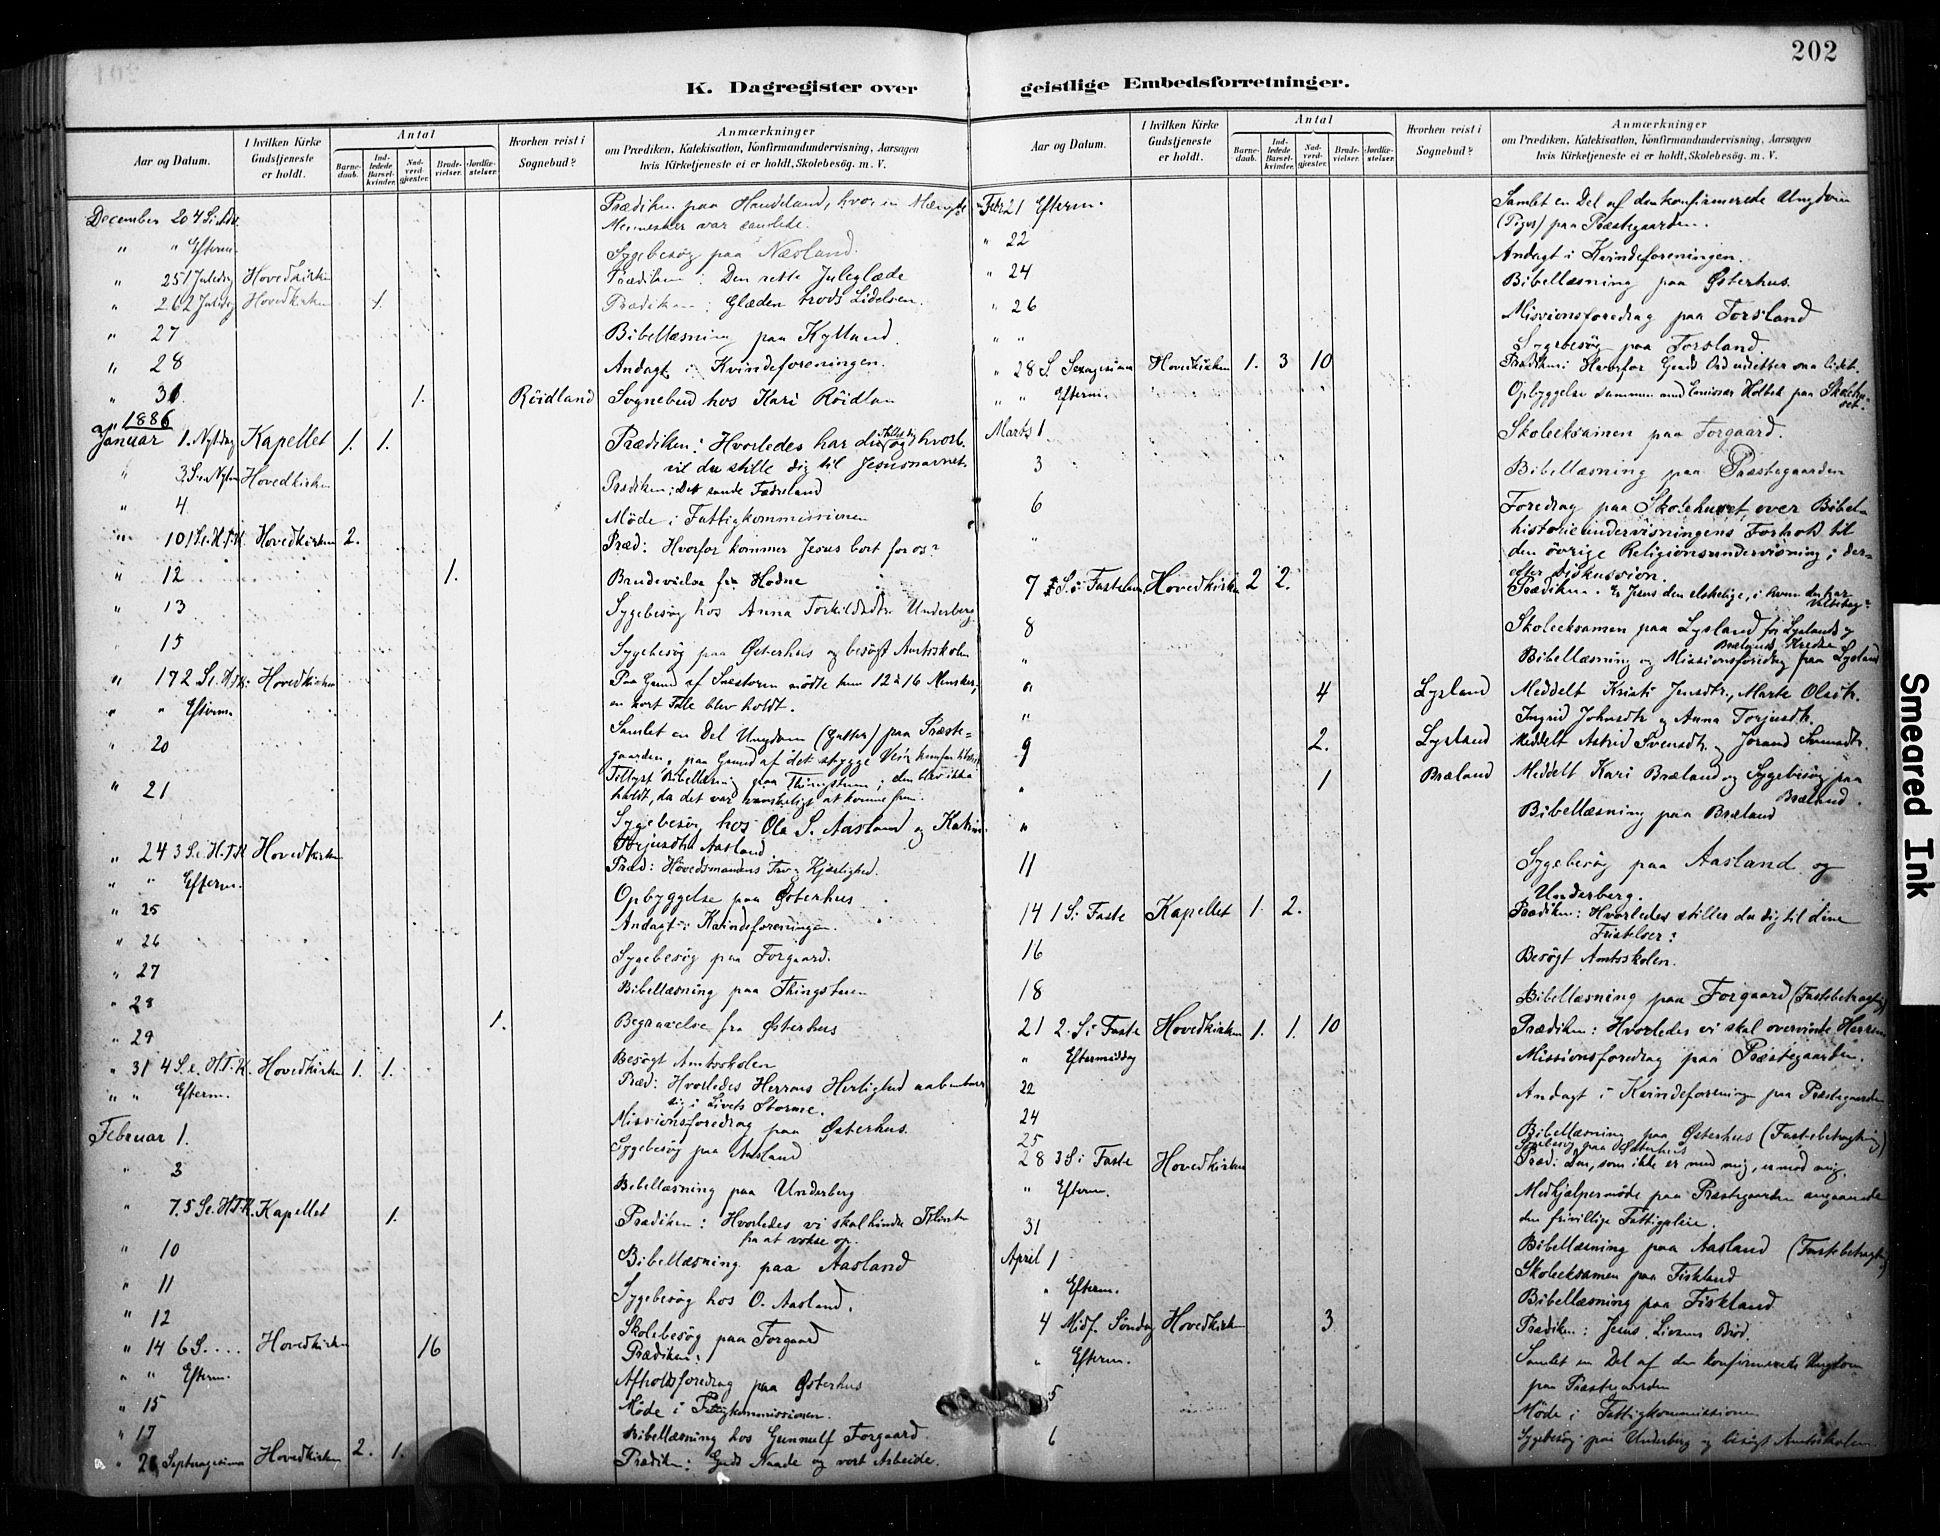 202
K. Dagregister over geistlige Embedsforretninger.
Aar og Datum.
I hvilken Kirke Gudstjeneste er holdt.
Antal
Barnedaab.
Indledede Barselkvinder.
Nadverdgjester.
Brudevielser.
Jordfæstelser.
Hvorhen reist i Sognebud?
Anmærkninger
om Prædiken, Katekisation, Konfirmandundervisning, Aarsagen
hvis Kirketjeneste ei er holdt, Skolebesøg. m. V.
December 20 4 S. i Adv. Prædiken paa Haudeland, hvor en Mængde
Mennesker var samlede.
" " Efterm. Sygebesøg paa Næsland.
" 25 1 Juledag Hovedkirken Prædiken: Den rette Juleglæde
" 26 2 Juledag Hovedkirken 1. Prædiken: Glæden trods Lidelsen.
" 27 Bibellæsning paa Kylland.
" 28 Andagt i Kvindeforeningen.
" 31. 1. Röidland Sognebud hos Kari Röidlan
1886
Januar 1. Nytdag Kapellet 1. 1. Prædiken: Hvorledes har du stillet dig og hvorl.
vil du stille dig til Jesusnavnet
" 3. S. e Nytaar Hovedkirken Prædiken: Det sande Fædreland
" 4 Möde i Fattigkommissionen
" 10 1 S. e. H.T.K. Hovedkirken 2. Præd: Hvorfor kommer Jesus bort for os?
" 12 1. Brudevielse fra Hodne
" 13 Sygebesøg hos Anna Torkildsdtr. Underberg
15 Sygebesøg paa Østerhus og besøgt Amtsskolen
" 17 2 S. e. H.T.K. Hovedkirken Paa Grund af Snestorm mødte kun 12 à 16 Mensker;
" " Efterm. en kort Tale blev holdt.
" 20 Samlet en Del Ungdom (Gutter) paa Præste-
gaarden, paa Grund af det stygge Veir
" 21 Tillyst Bibellæsning paa Thingstuen; den blev ikke
holdt, da det var vanskeligt at komme frem.
Sygebesøg hos Ola S. Aasland og Katrine
Torjusdtr. Aasland.
" 24 3 S. e. H.T.K. Hovedkirken Præd: Hövedsmandens Tro og Kjærlighed.
" " Efterm. Opbyggelse paa Østerhus.
" 25 Andagt i Kvindeforeningen.
" 26 Sygebesøg paa Forgaard.
" 27 Bibellæsning paa Thingstuen
" 28 1. Begravelse fra Østerhus
" 29 Besøgt Amtsskolen
" 31 4 S. e. H.T.K. Hovedkirken 1. 1. Præd: Hvorledes Herrens Herlighed aabenbarer
sig i Livets Storme.
" " Efterm. Missionsforedrag paa Østerhus.
Februar 1. Sygebesøg paa Aasland
" 3 Bibellæsning paa Underberg
" 7. 5 S. e. H.T.K. Kapellet 1. Prædiken: Hvorledes vi skal hindre Klinten
fra at vokse op.
" 10 Bibellæsning paa Aasland
" 11 Sygebesøg hos O. Aasland.
" 12 Skolebesøg paa Forgaard
" 14 6 S. .... Hovedkirken 16 Prædiken:
" " Efterm. Afholdsforedrag paa Østerhus
" 15 Møde i Fattigkommissionen.
" 17 Bibellæsning hos Gunnulf Forgaard.
" 21 Septuagesima Hovedkirken 2. 1. Prædiken: Guds Naade og vort Arbeide.
Aar og Datum.
I hvilken Kirke Gudstjeneste er holdt.
Antal
Barnedaab.
Indledede Barselkvinder.
Nadverdgjester.
Brudevielser.
Jordfæstelser.
Hvorhen reist i Sognebud?
Anmærkninger
om Prædiken, Katekisation, Konfirmandundervisning, Aarsagen
hvis Kirketjeneste ei er holdt, Skolebesøg. m. V.
Febr. 21 Efterm. Samlet en Del af den konfirmerede Ungdom
(Piger) paa Præstegaarden.
" 22 Andagt i Kvindeforeningen.
" 24 Bibellæsning paa Østerhus.
" 26 Missionsforedrag paa Forsland
" " Sygebesøg paa Forsland.
" 28 S. Sexagesima Hovedkirken 1. 3 10 Prædiken: Hvorfor Guds Ord udretter saa lidet.
" " Efterm. Opbyggelse sammen med Emissær Holbek paa Skolehuset.
Marts 1 Skoleeksamen paa Forgaard.
3 Bibellæsning paa Præstegaarden
6 Foredrag paa Skolehuset over Bibel-
historieundervisningens Forhold til
" den övrige Religionsundervisning; der-
efter Diskussion.
7 S. i Fastelavn Hovedkirken 2 2. Prædiken. Er Jesus den elskelige, i hvem du har
Velbehag?
8 Skoleeksamen paa Lysland for Lyslands og
Brælands Kredse
" Bibellæsning og Missionsforedrag paa Lysland
" 4 Lysland Meddelt Kristi Jensdtr., Marte Olsdtr.
" Ingrid Johnsdtr. og Anna Torjusdtr.
9 2. Lysland Meddelt Astrid Svensdtr. og Jorand Svensdtr.
" 1 Bræland Meddelt Kari Bræland og Sygebesøg paa
Bræland.
" Bibellæsning paa Bræland
11 Sygebesøg paa Aasland og
Underberg.
14 1 S. i Faste Kapellet 1. 2. Prædiken: Hvorledes stiller du dig til dine
Fristelser?
16 Besøgt Amtsskolen.
18 Bibellæsning paa Forgaard (Fastebetragtn.)
21 2. S. i Faste Hovedkirken 1. 1. 10 Prædiken: Hvorledes vi skal overvinde Herren
" Eftermiddag Missionsforedrag paa Præstegaarden.
22 Andagt i Kvindeforeningen paa Præstegaarden
24 Bibellæsning paa Østerhus (Fastebetragtning)
25 Sygebesøg paa Østerhus
28 3 S. i Faste Hovedkirken Præd: Den, som ikke er med mig, er mod mig.
" Efterm. Medhjælpermøde paa Præstegaarden angaaende
den frivillige Fattigpleie.
31 Bibellæsning paa Aasland (Fastebetragtn.)
April 1 Skoleeksamen paa Fiskland
" Efterm. Bibellæsning paa Fiskland
4 Midf. Søndag Hovedkirken 3 Prædiken: Jesus, Livsens Brød.
" Efterm. Samlet en Del af den konfirmerede Ungdom
paa Præstegaarden
5 Møde i Fattigkommissionen
6 Sygebesøg paa Underberg og besøgt Amtsskolen
Smeared Ink